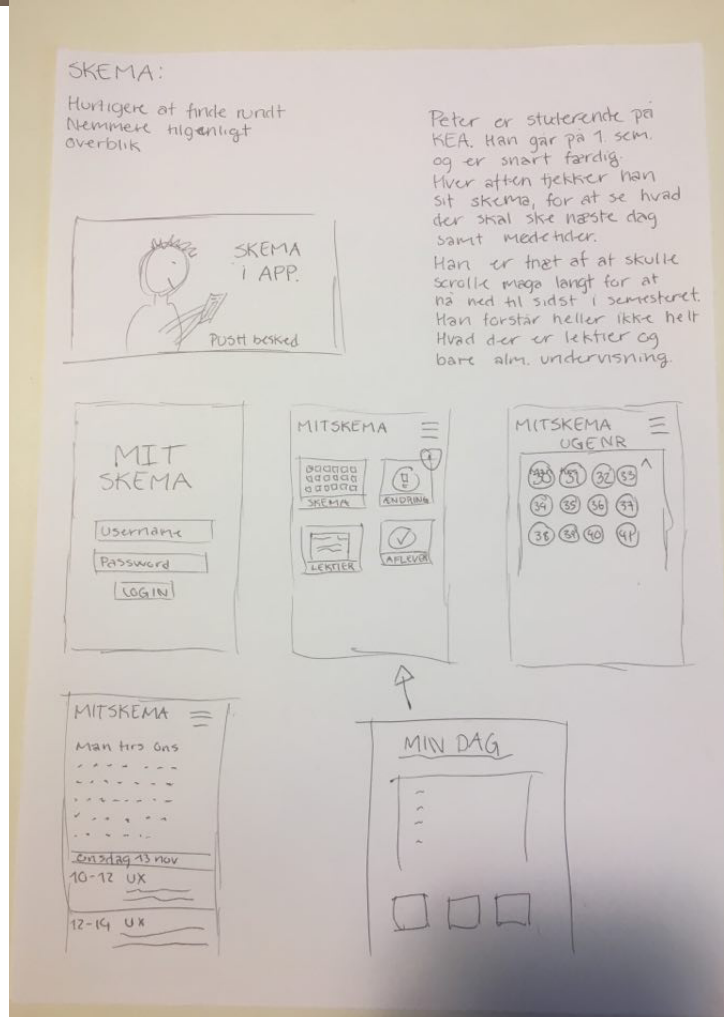 SKEMA:
Hurtigere at finde rundt
Nemmere tilgenligt
overblik
Peter er stuterende på
KEA. Han går på 1. sem.
og er snart færdig.
Hver aften tjekker han
sit skema, for at se hvad
der skal ske næste dag
samt mødetider.
Han er træt af at skulle
scrolle mega langt for at
nå ned til sidst i semesteret.
Han forstår heller ikke helt
Hvad der er lektier og
bare alm. undervisning.
SKEMA
i APP.
PUSH besked
MIT
SKEMA
Username
Password
LOGIN
MITSKEMA
SKEMA
ÆNDRING
LEKTIER
AFLEVER
MITSKEMA
UGENR
30 31 32 33
34 35 36 37
38 39 40 41
MITSKEMA
Man tirs Ons
onsdag 13 nov
10-12 UX
12-14 UX
MIN DAG